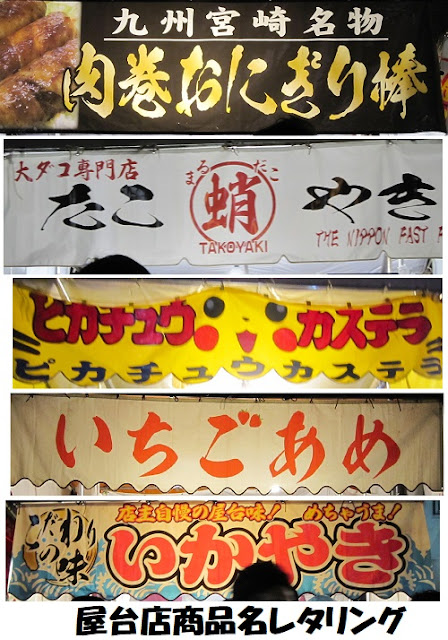 九州宮崎名物
肉巻おにぎり棒
大ダコ専門店
たこ
まるだこ
蛸
TAKOYAKI
やき
THE NIPPON FAST F
ピカチュウ カステラ
ピカチュウカステラ
いちごあめ
こだわりの味
店主自慢の屋台味! めちゃうま!
いかやき
屋台店商品名レタリング